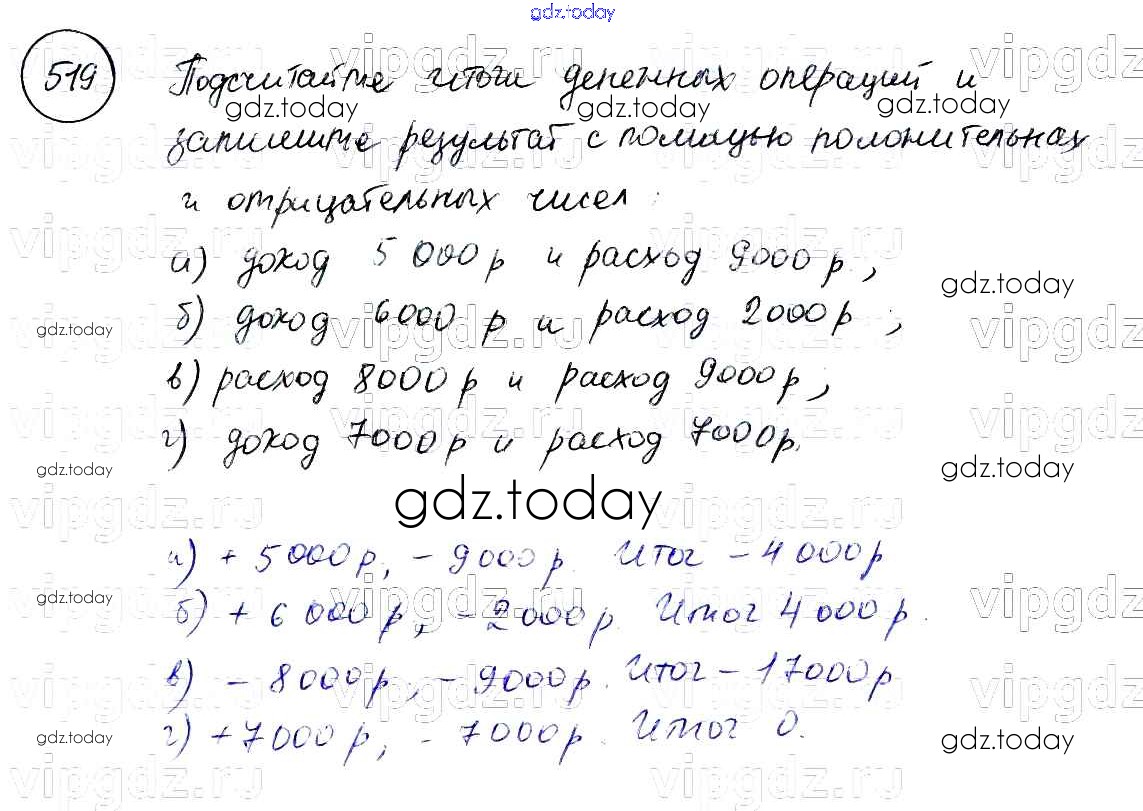 gdz.today
519
Подсчитайте итоги денежных операций и
запишите результат с помощью положительных
и отрицательных чисел:
а) доход 5 000 р и расход 9000 р.,
б) доход 6000 р и расход 2000 р.,
в) расход 8000 р и расход 9000 р.,
г) доход 7000 р и расход 7000 р.
gdz.today
а) + 5 000 р, - 9000 р. Итог - 4 000 р
б) + 6 000 р, - 2000 р. Итог 4 000 р.
в) - 8000 р, - 9000 р. Итог - 17000 р
г) + 7000 р, - 7000 р. Итог 0.
gdz.today
vipgdz.ru